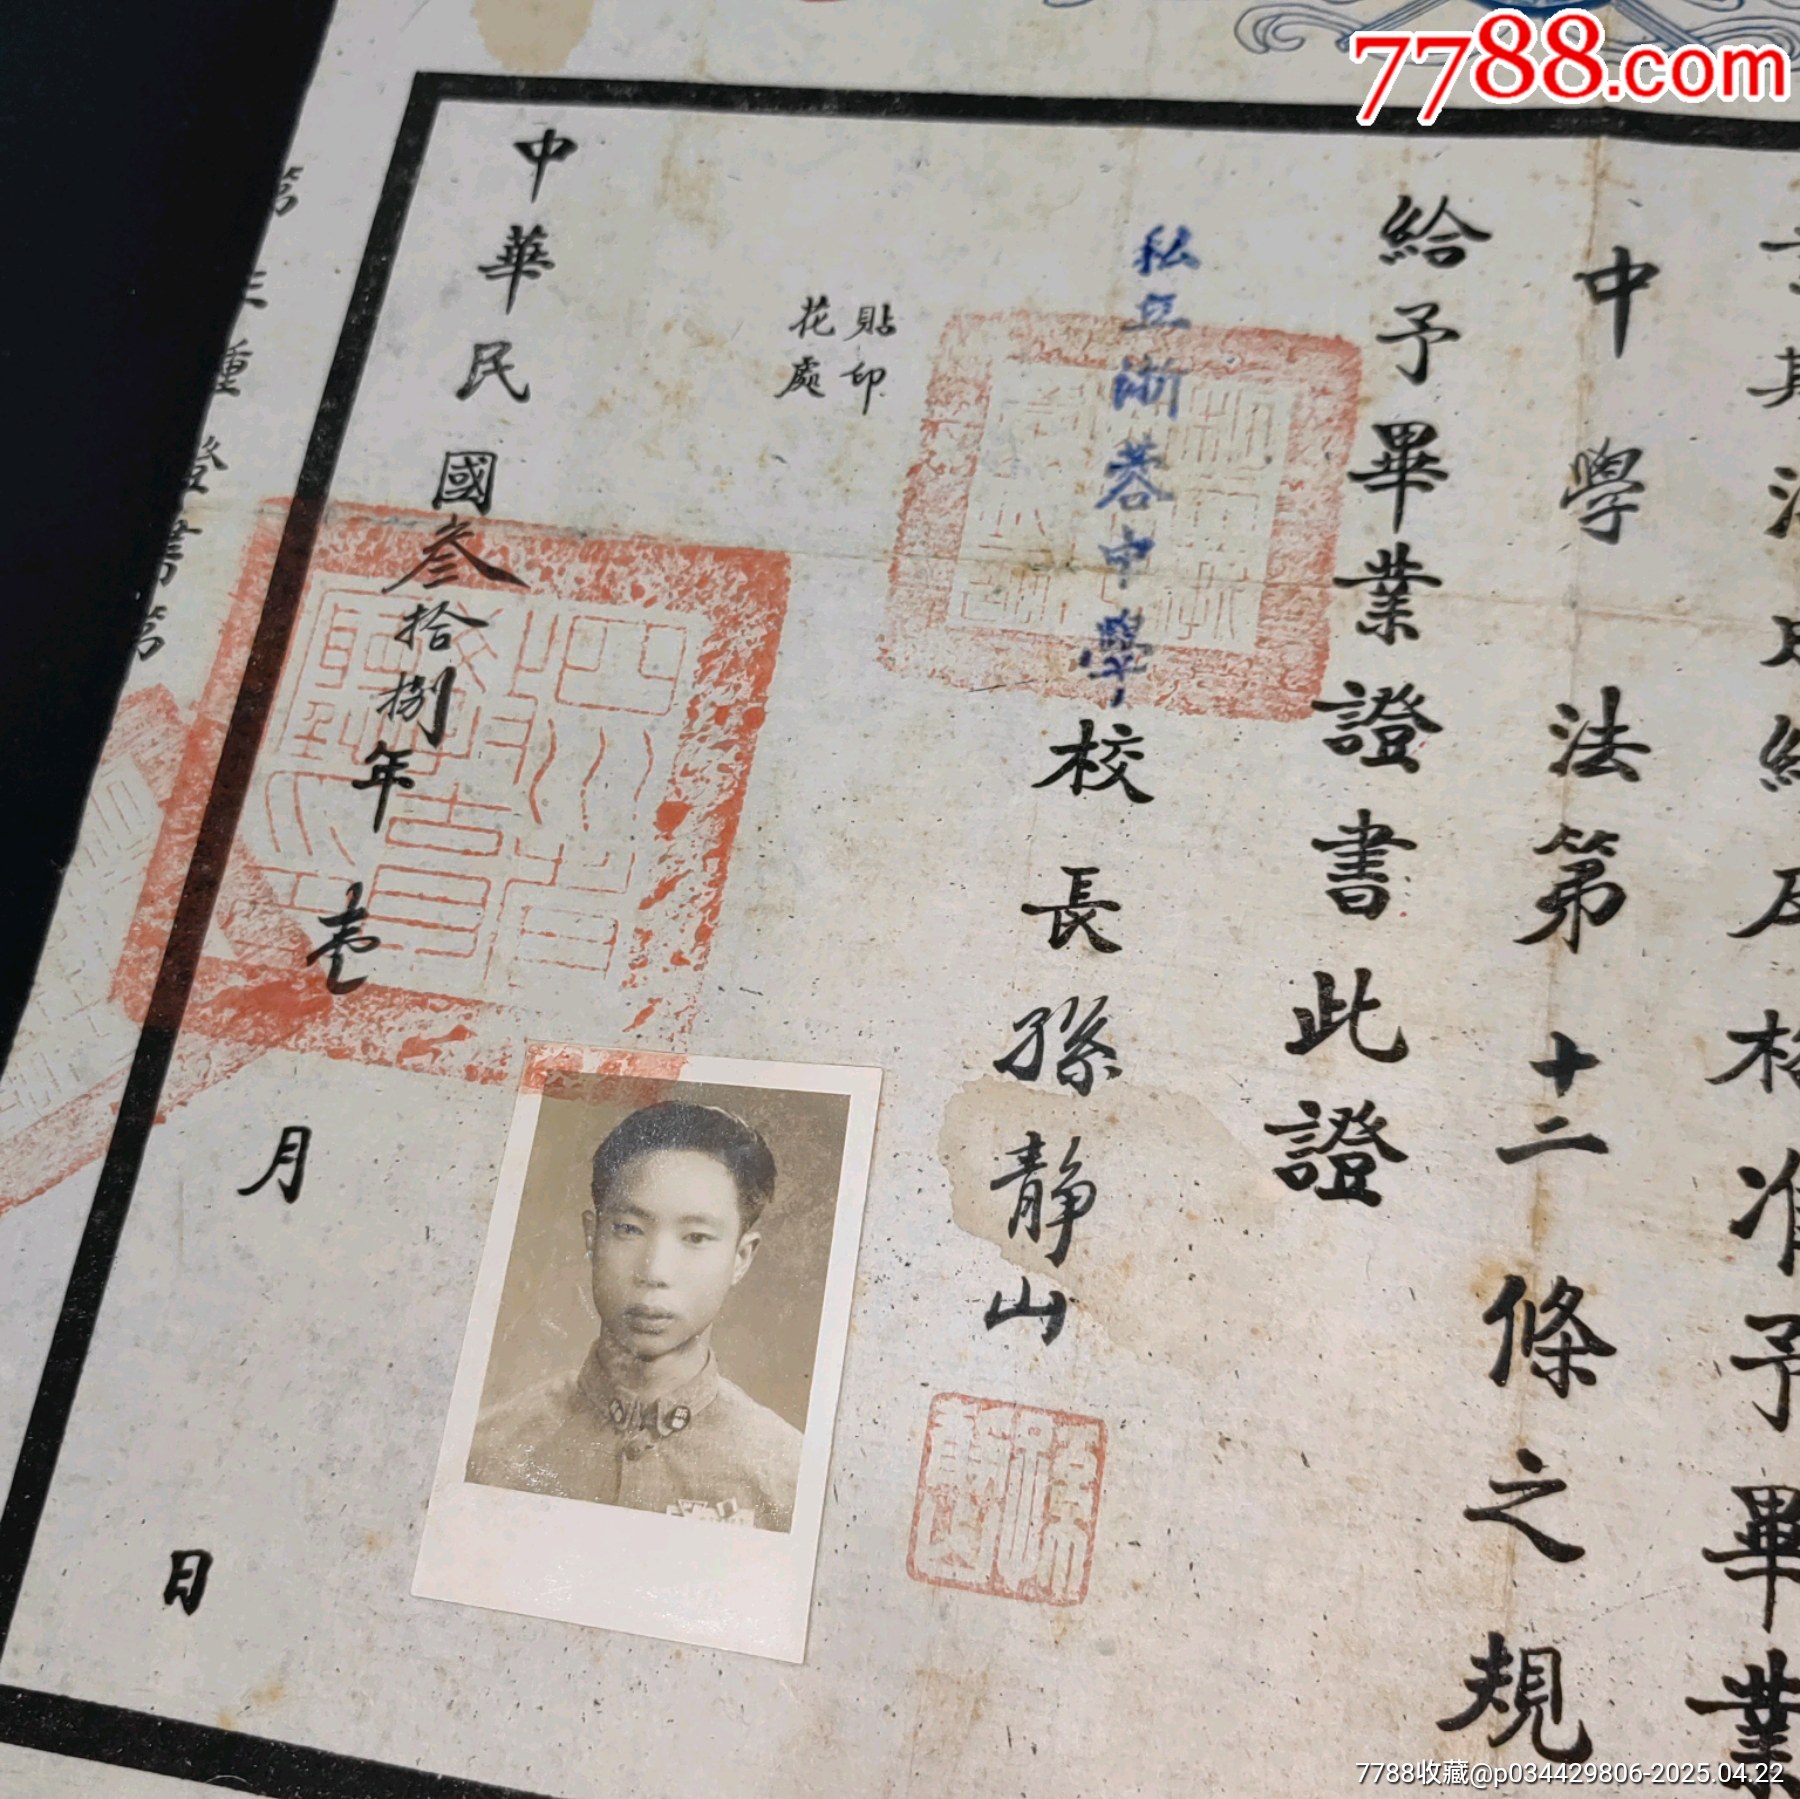 7788.com
業期滿成績及格准予畢業
中學法第十二條之規
給予畢業證書此證
私立浙蓉中學校長孫靜山
貼印
花處
中華民國叁拾捌年壹月日
第三種證書第
7788收藏@p034429806-2025.04.22